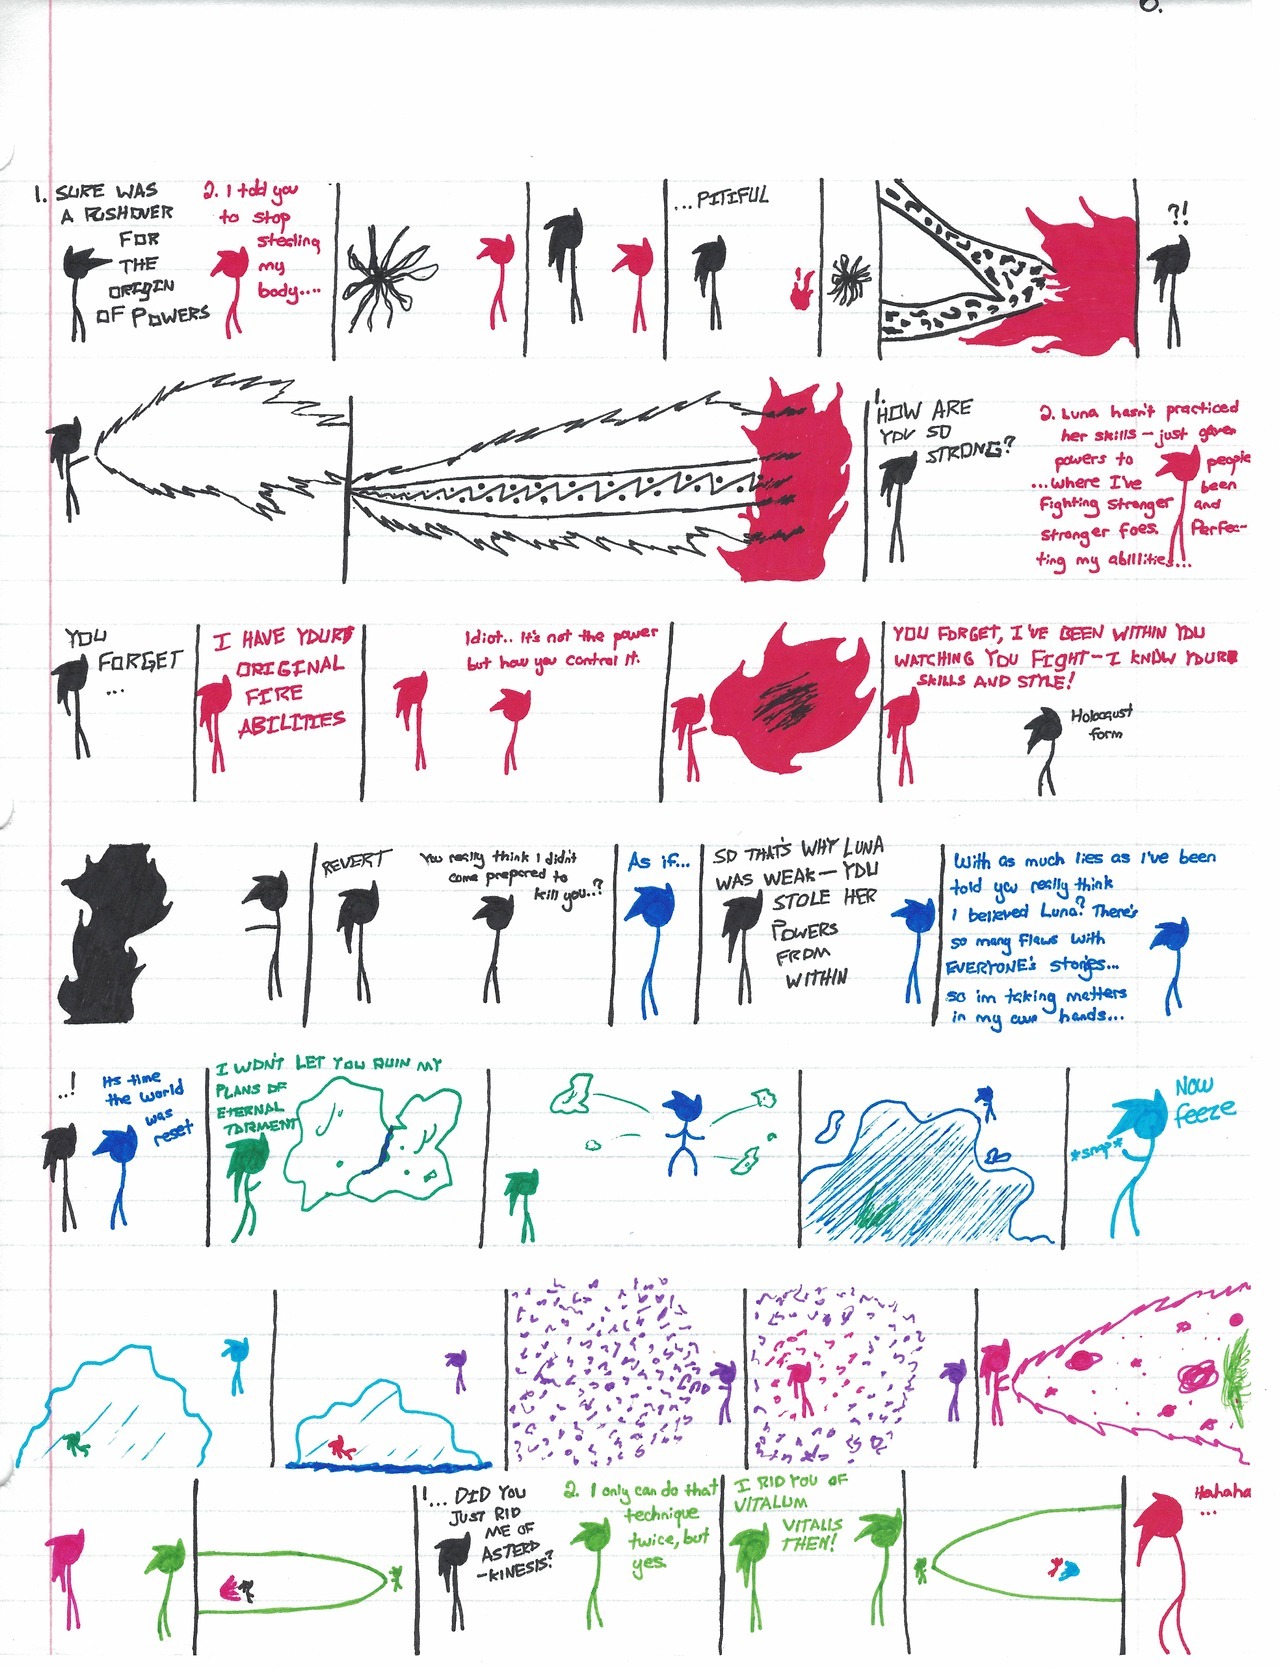 6.
1. SURE WAS
A PUSHOVER
FOR
THE
ORIGIN
OF POWERS
2. I told you
to stop
stealing
my
body....
...PITIFUL
?!
1.
HOW ARE
YOU SO
STRONG?
2. Luna hasn't practiced
her skills - just gave
powers to people
...where I've been
Fighting stranger and
stronger foes. Perfec-
ting my abillities...
YOU
FORGET
...
I HAVE YOUR
ORIGINAL
FIRE
ABILITIES
Idiot.. It's not the power
but how you control it.
YOU FORGET, I'VE BEEN WITHIN YOU
WATCHING YOU FIGHT - I KNOW YOUR
SKILLS AND STYLE!
Holocaust
form
REVERT
You really think I didn't
come prepared to
kill you..?
As if...
SO THAT'S WHY LUNA
WAS WEAK - YOU
STOLE HER
POWERS
FROM
WITHIN
With as much lies as I've been
told you really think
I believed Luna? There's
so many flaws with
EVERYONE's stories...
so im taking matters
in my own hands...
..!
Its time
the world
was
reset
I WON'T LET YOU RUIN MY
PLANS OF
ETERNAL
TORMENT
*snap*
Now
feeze
1... DID YOU
JUST RID
ME OF
ASTERO
-KINESIS?
2. I only can do that
technique
twice, but
yes.
I RID YOU OF
VITALUM
VITALIS
THEN!
Hahaha
...